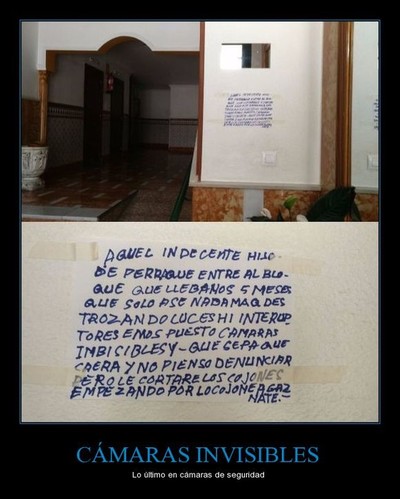 AQUEL INDECENTE HIJO-
DE PERRA QUE ENTRE AL BLO-
QUE QUE LLEBANOS 5 MESES
QUE SOLO ASE NADAMAQ DES
TROZANDO LUCES HI INTERUP
TORES EMOS PUESTO CAMARAS
IMBISIBLES Y - QUE SEPA QUE
CAERA Y NO PIENSO DENUNCIAR
PERO LE CORTARE LOS COJONES
EMPEZANDO POR LO COJONE A GAZ
NATE.-
CÁMARAS INVISIBLES
Lo último en cámaras de seguridad